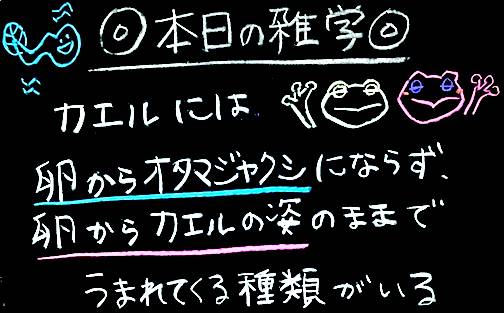 ◎本日の雑学◎
カエルには
卵からオタマジャクシにならず、
卵からカエルの姿のままで
うまれてくる種類がいる